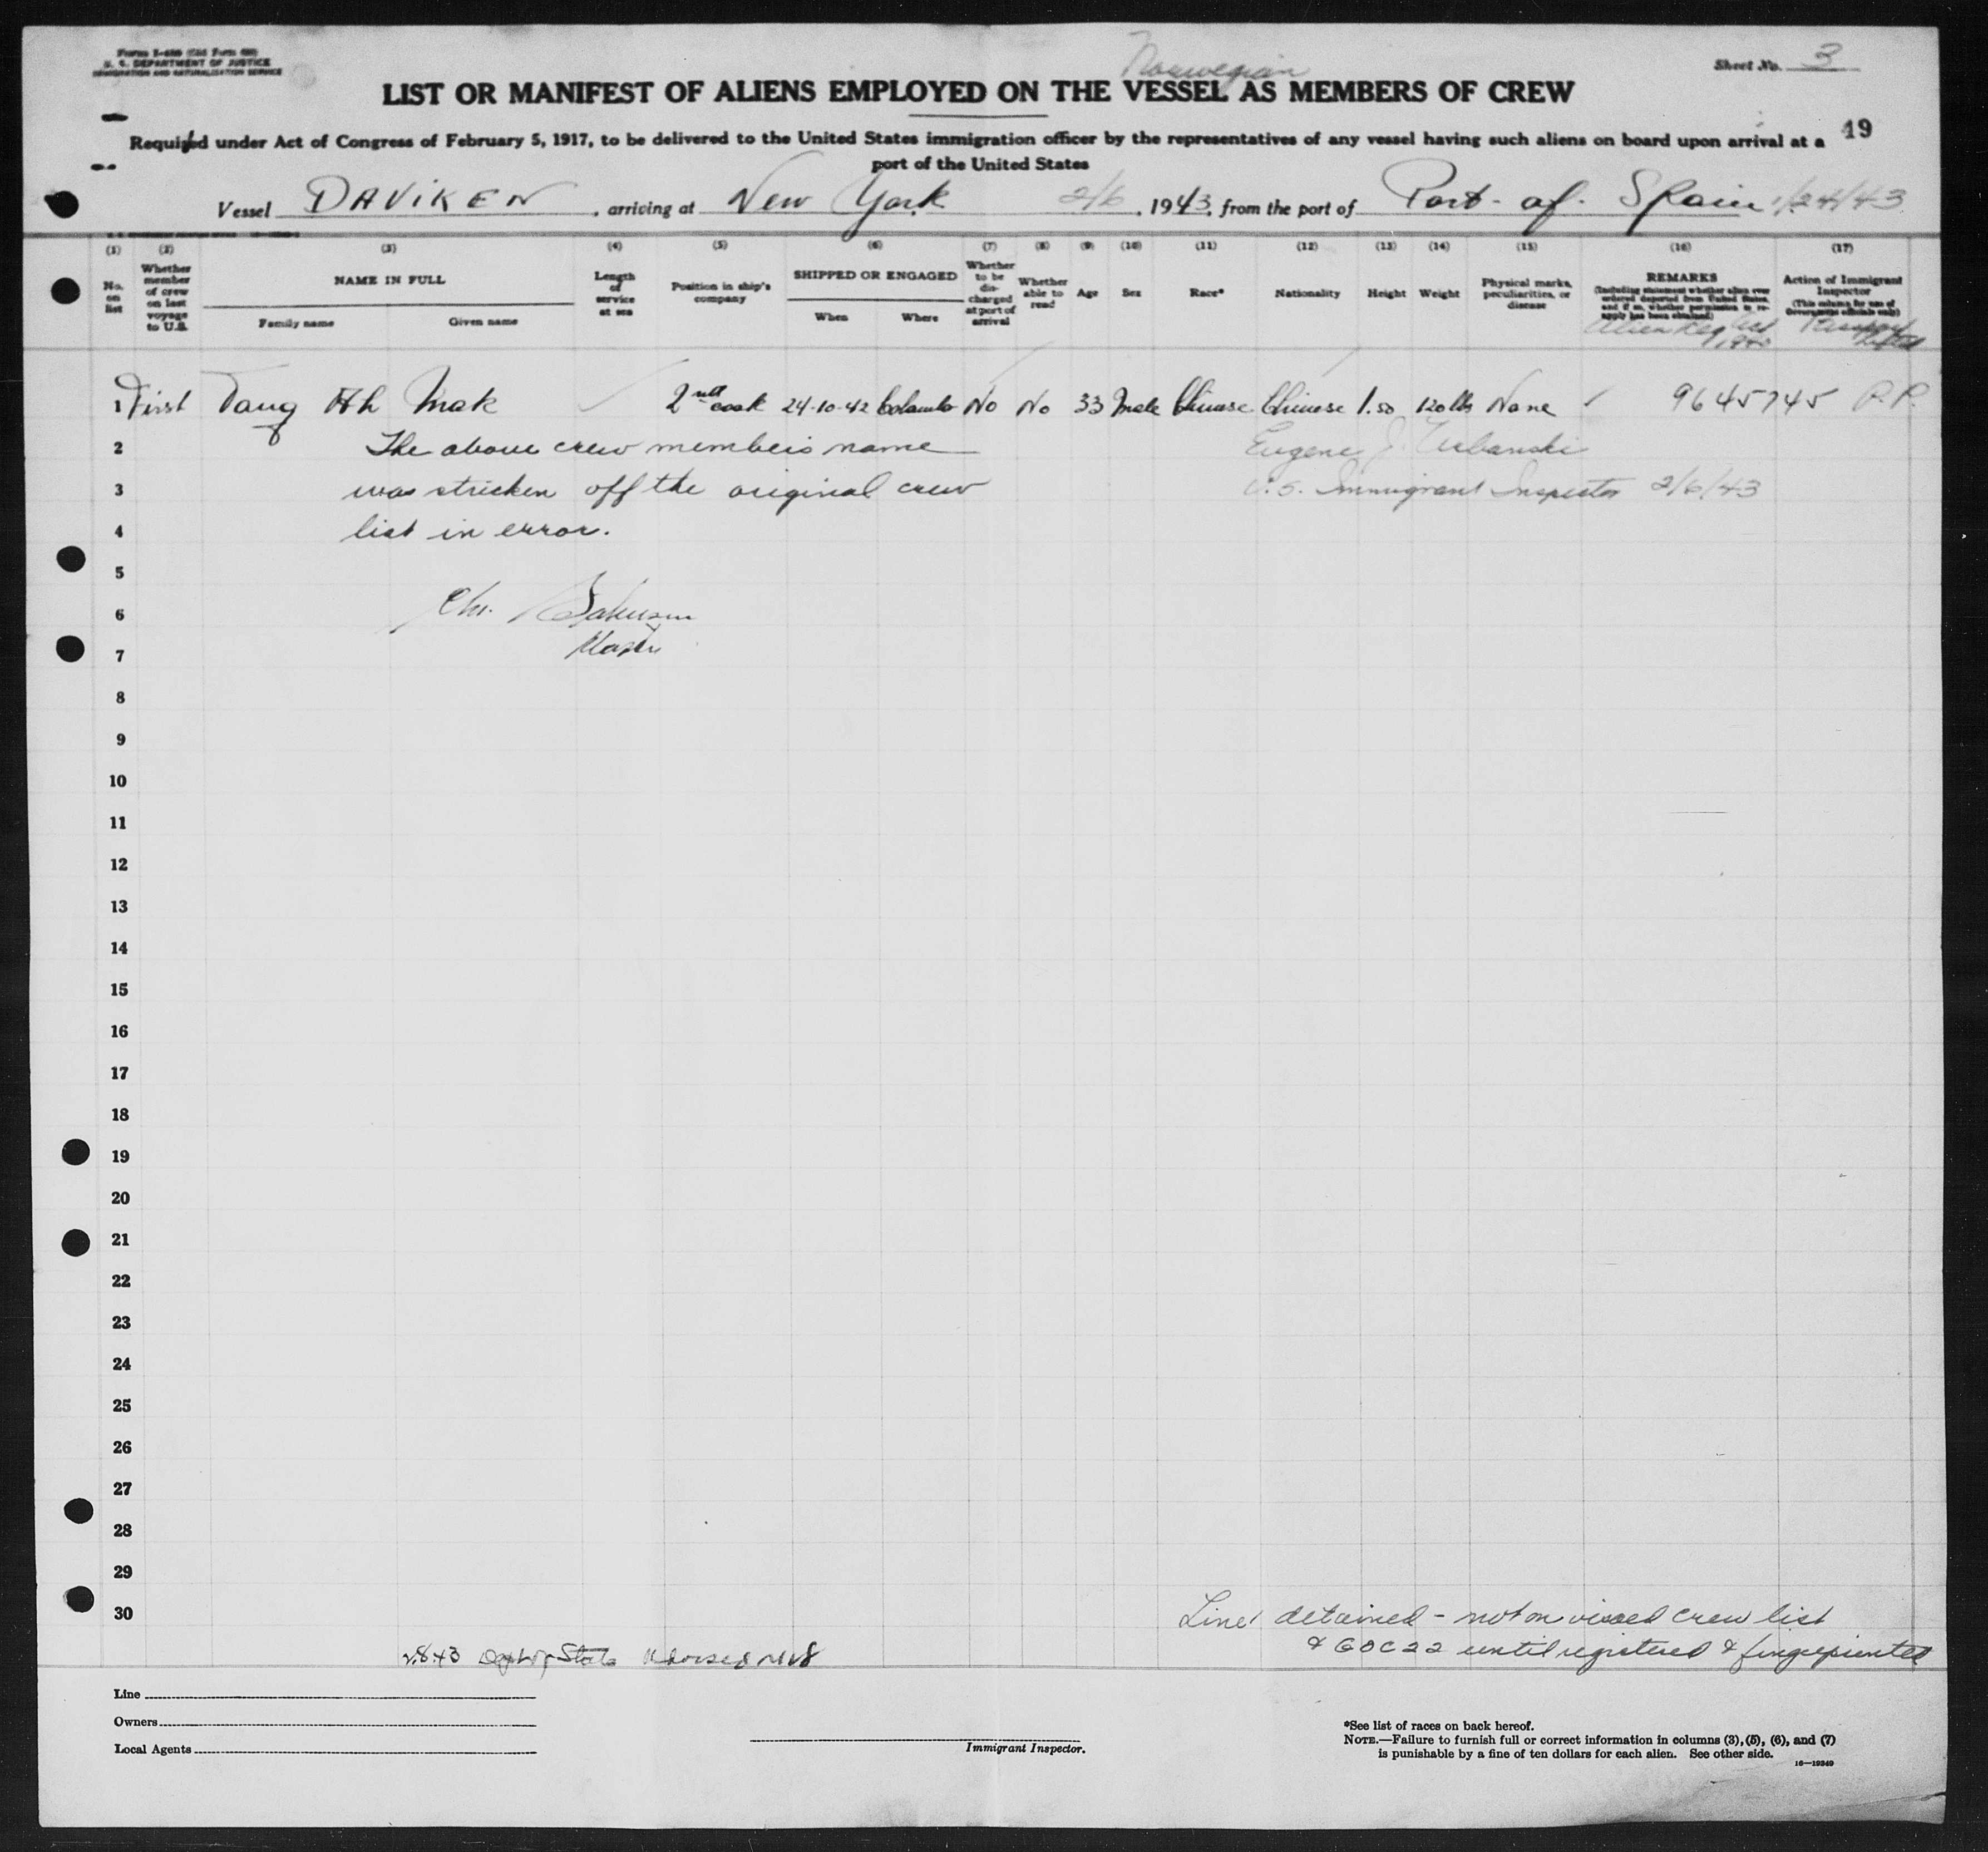 U. S. DEPARTMENT OF JUSTICE
IMMIGRATION AND NATURALIZATION SERVICE
Sheet No. 3
Norwegian
LIST OR MANIFEST OF ALIENS EMPLOYED ON THE VESSEL AS MEMBERS OF CREW
19
Required under Act of Congress of February 5, 1917, to be delivered to the United States immigration officer by the representatives of any vessel having such aliens on board upon arrival at a
port of the United States
Vessel DAVIKEN, arriving at New York 2/6, 1943, from the port of Port of Spain 1/24/43
(1) (2) (3) (4) (5) (6) (7) (8) (9) (10) (11) (12) (13) (14) (15) (16) (17)
No. on list
Whether member of crew on last voyage to U.S.
NAME IN FULL
Family name Given name
Length of service at sea
Position in ship's company
SHIPPED OR ENGAGED
When Where
Whether to be discharged at port of arrival
Whether able to read
Age
Sex
Race*
Nationality
Height
Weight
Physical marks, peculiarities, or disease
REMARKS
(Including statement whether alien ever ordered deported from United States, and if so, whether permission to reapply has been obtained)
Alien Reg Act 1940
Action of Immigrant Inspector
(This column for use of Government officials only)
1 First Mak 2nd cook 24-10-42 Colombo No No 33 Male Chinese Chinese 1.50 120 lbs None 9645745 P.P.
2 The above crew members name Eugene J. Urbanski
3 was stricken off the original crew U.S. Immigrant Inspector 2/6/43
4 list in error.
5
6 Chr.
7 Master
8
9
10
11
12
13
14
15
16
17
18
19
20
21
22
23
24
25
26
27
28
29
30 Line 1 detained - not on visaed crew list
& GOC22 until registered & fingerprinted
2.8.43
Line
Owners
Local Agents
Immigrant Inspector.
*See list of races on back hereof.
NOTE.—Failure to furnish full or correct information in columns (3), (5), (6), and (7)
is punishable by a fine of ten dollars for each alien. See other side.
16—19349